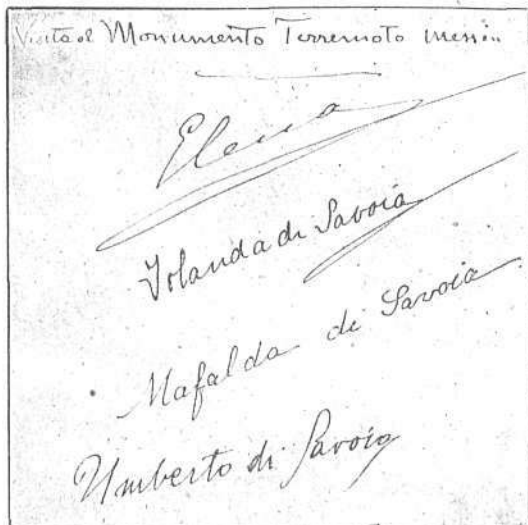 Visita al Monumento Terremoto
Elena
Yolanda di Savoia
Mafalda di Savoia
Umberto di Savoia